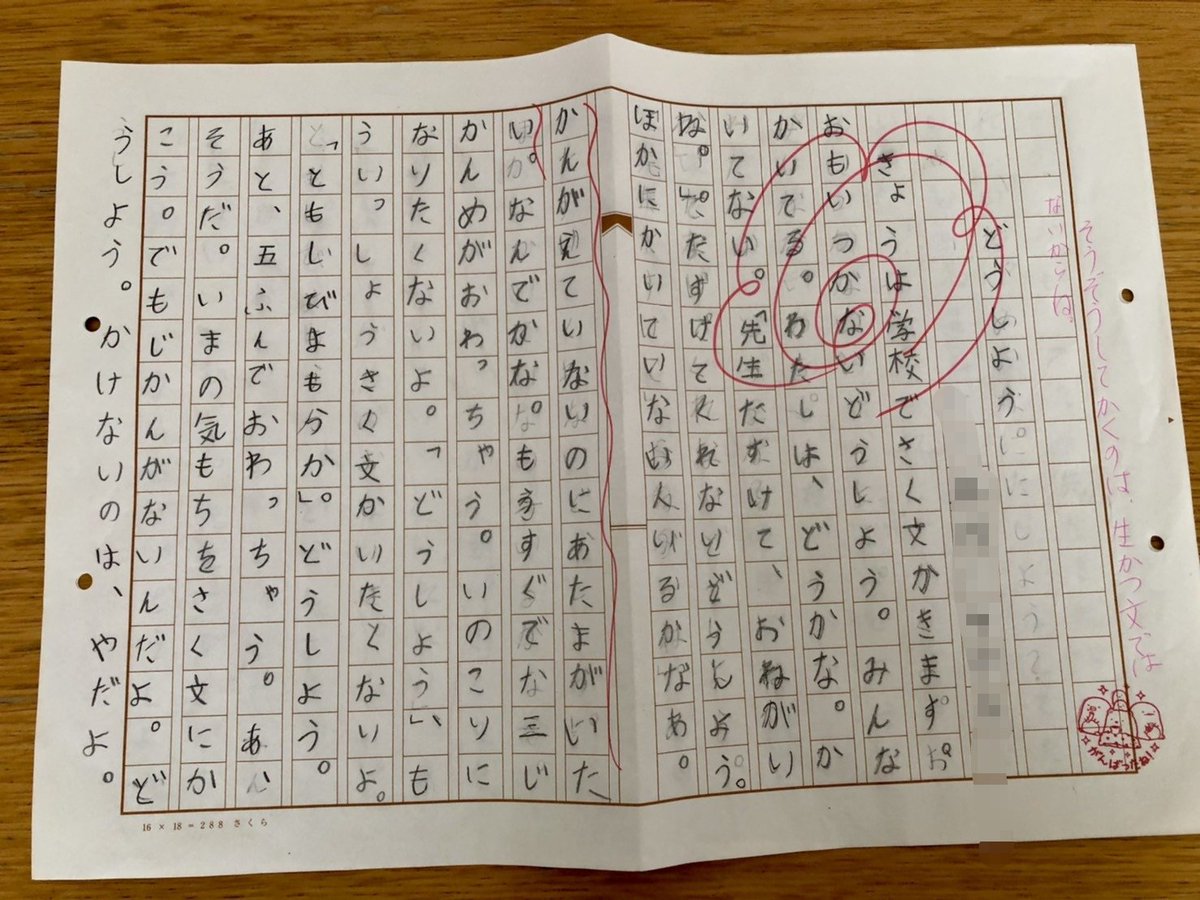 そうぞうしてかくのは、生かつ文では
ないからね。
がんばったね!
どうしよう
きょうは学校でさく文かきます。
おもいつかないどうしよう。みんな
かいてる。わたしは、どうかな。か
いてない。「先生たすけて、おねがい
ね。」たすけてくれないどうしよう。
ほかにかいていない人いるかなあ。
かんがえていないのにあたまがいた
い。なんでかな。もうすぐでな三じ
かんめがおわっちゃう。いのこりに
なりたくないよ。「どうしよう」、も
ういっしょうさく文かいたくないよ。
どうしよう。
あと、五ふんでおわっちゃう。あ、
そうだ。いまの気もちをさく文にか
こう。でもじかんがないんだよ。ど
うしよう。かけないのは、やだよ。
16 × 18 = 288 さくら